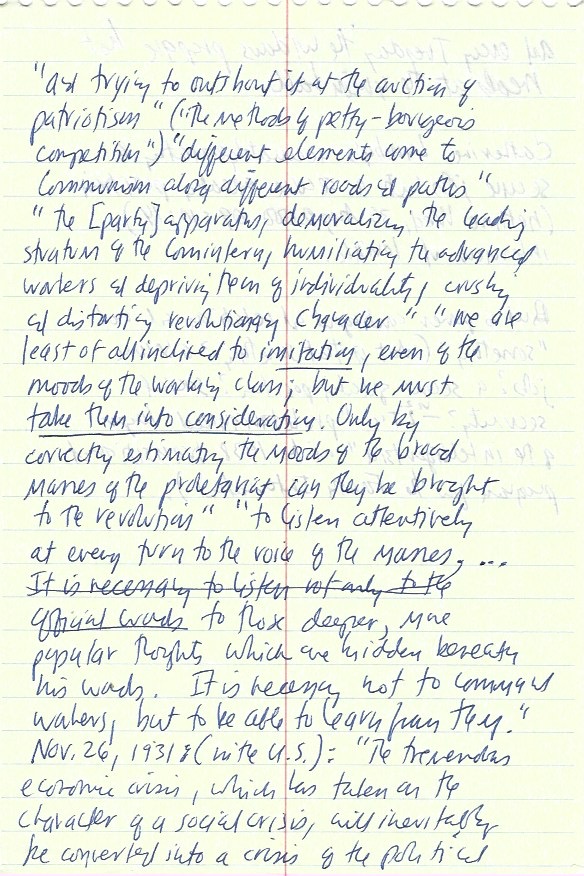 "and trying to outshout it at the auction of
patriotism" ("the methods of petty-bourgeois
competition") "different elements come to
Communism along different roads & paths"
"the [party] apparatus, demoralizing the leading
stratum of the Comintern, humiliating the advanced
workers & depriving them of individuality, crushing
& distorting revolutionary character" "we are
least of all inclined to imitating, even of the
moods of the working class; but we must
take them into consideration. Only by
correctly estimating the moods of the broad
masses of the proletariat can they be brought
to the revolution" "to listen attentively
at every turn to the voice of the masses, ...
It is necessary to listen not only to the
official words to those deeper, more
popular thoughts which are hidden beneath
his words. It is necessary not to command
workers, but to be able to learn from them."
Nov. 26, 1931 (in the U.S.): "The tremendous
economic crisis, which has taken on the
character of a social crisis, will inevitably
be converted into a crisis of the political